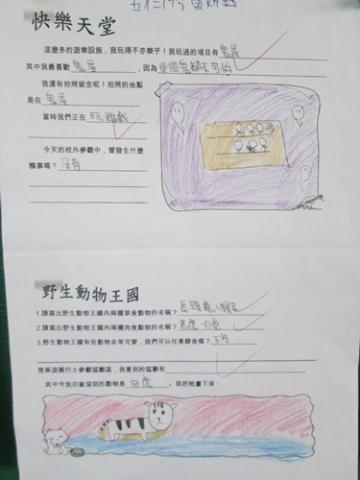 快樂天堂
這麼多的遊樂設施，我玩得不亦樂乎！我玩過的項目有 鬼屋
其中我最喜歡 鬼屋，因為
我還有拍照留念呢！拍照的地點
是在 鬼屋
當時我們正在 玩遊戲
今天的校外參觀中，曾發生什麼
糗事嗎？沒有
野生動物王國
1.請寫出野生動物王國內兩種草食動物的名稱？
2.請寫出野生動物王國內兩種肉食動物的名稱？老虎、白虎
3.野生動物王國有些動物非常可愛，我們可以任意餵食嗎？不可
搭乘遊園巴士參觀猛獸區，我看到的猛獸有
其中令我印象深刻的動物是 白虎，我把牠畫下來：